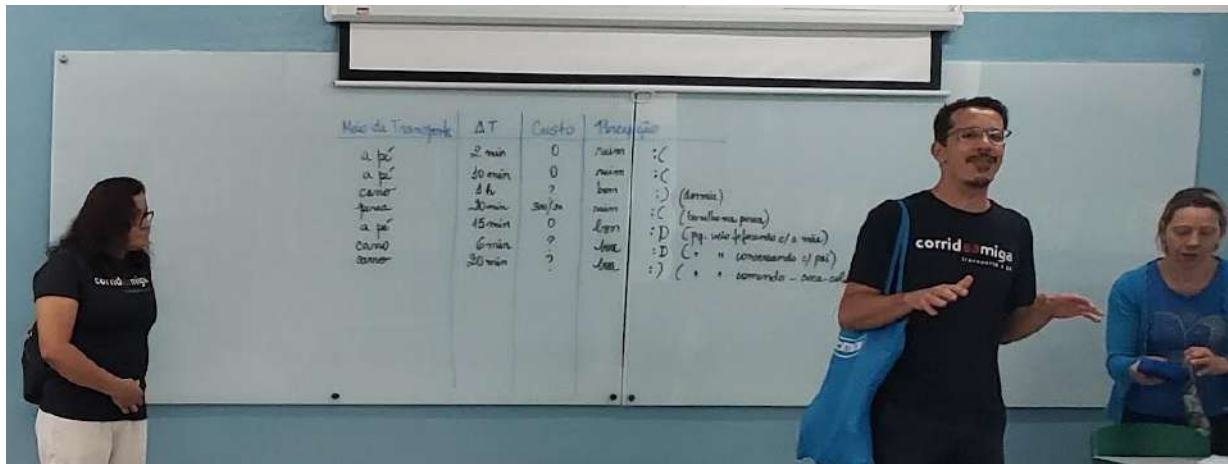 Meio de Transporte ΔT Custo Percepção
a pé 2 min 0 ruim :(
a pé 10 min 0 ruim :(
carro 1 h ? bom :) (dormia)
perua 20 min 300/ ruim :( (barulho na perua)
a pé 15 min 0 bom :D (pq. veio c/ a mãe)
carro 6 min ? boa :D (" " conversando c/ pai)
carro 20 min ? boa :) (" " comendo -
corridaamiga
corridaamiga